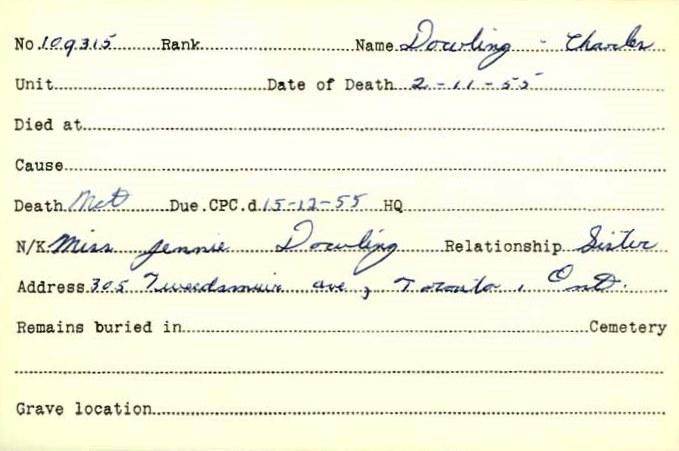 No. 109315 Rank Name Dowling - Charles
Unit Date of Death 2-11-55
Died at
Cause
Death Not Due. CPC.d 15-12-55 HQ
N/K Miss Jennie Dowling Relationship Sister
Address 305 Tweedsmuir ave, Toronto, Ont.
Remains buried in Cemetery
Grave location